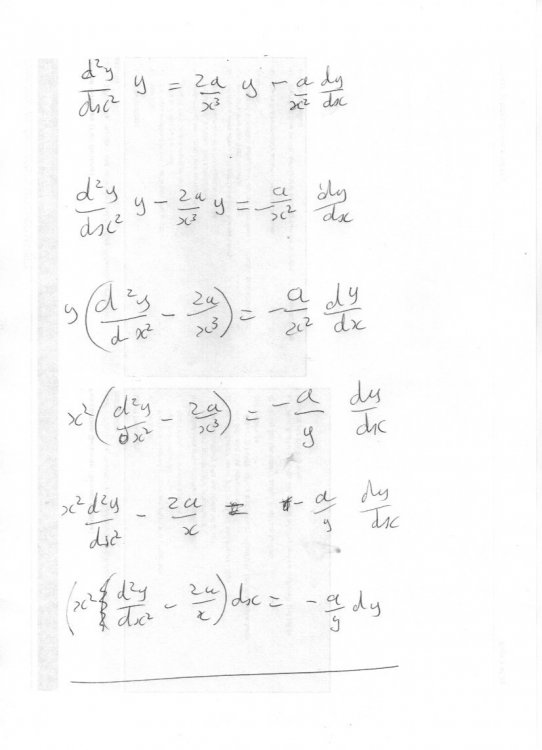 d²y/dx² y = 2a/x³ y − a/x² dy/dx
d²y/dx² y − 2a/x³ y = −a/x² dy/dx
y(d²y/dx² − 2a/x³) = −a/x² dy/dx
x²(d²y/dx² − 2a/x³) = −a/y dy/dx
x² d²y/dx² − 2a/x = −a/y dy/dx
(x² d²y/dx² − 2a/x) dx = −a/y dy